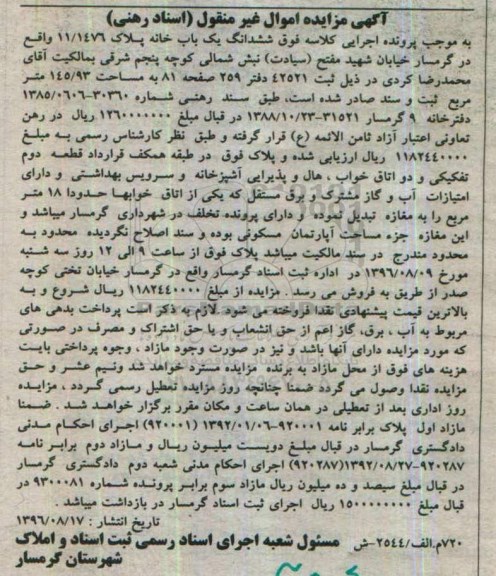 آگهی مزایده اموال غیر منقول (اسناد رهنی)
به موجب پرونده اجرایی کلاسه فوق ششدانگ یک باب خانه پلاک ۱۱/۱۴۷۶ واقع
در گرمسار خیابان شهید مفتح (سیادت) نبش شمالی کوچه پنجم شرقی بمالکیت آقای
محمدرضا کردی در ذیل ثبت ۴۲۵۲۱ دفتر ۲۵۹ صفحه ۸۱ به مساحت ۱۴۵/۹۳ متر
مربع ثبت و سند صادر شده است، طبق سند رهنی شماره ۳۰۳۶۰-۱۳۸۵/۰۶۰۶
دفترخانه ۹ گرمسار ۳۱۵۲۱-۱۳۸۸/۱۰/۲۳ در قبال مبلغ ۱۲۶۰۰۰۰۰۰۰ ریال در رهن
تعاونی اعتبار آزاد ثامن الائمه (ع) قرار گرفته و طبق نظر کارشناس رسمی به مبلغ
۱۱۸۲۴۴۰۰۰۰ ریال ارزیابی شده و پلاک فوق در طبقه همکف قرارداد قطعه دوم
تفکیکی و دو اتاق خواب ، هال و پذیرایی آشپزخانه و سرویس بهداشتی و دارای
امتیازات آب و گاز مشترک و برق مستقل که یکی از اتاق خوابها حدودا ۱۸ متر
مربع را به مغازه تبدیل نموده و دارای پرونده تخلف در شهرداری گرمسار میباشد و
این مغازه جزء مساحت آپارتمان مسکونی بوده و سند اصلاح نگردیده محدود به
حدود مندرج در سند مالکیت میباشد پلاک فوق از ساعت ۹ الی ۱۲ روز سه شنبه
مورخ ۱۳۹۶/۰۸/۰۹ در اداره ثبت اسناد گرمسار واقع در گرمسار خیابان تختی کوچه
صدر از طریق به فروش می رسد . مزایده از مبلغ ۱۱۸۲۴۴۰۰۰۰ ریال شروع و به
بالاترین قیمت پیشنهادی نقدا فروخته می شود لازم به ذکر است پرداخت بدهی های
مربوط به آب ، برق، گاز اعم از حق انشعاب و یا حق اشتراک و مصرف در صورتی
که مورد مزایده دارای آنها باشد و نیز در صورت وجود مازاد ، وجوه پرداختی بابت
هزینه های فوق از محل مازاد به برنده مزایده مسترد خواهد شد ونیم عشر و حق
مزایده نقدا وصول می گردد ضمنا چنانچه روز مزایده تعطیل رسمی گردد ، مزایده
روز اداری بعد از تعطیلی در همان ساعت و مکان مقرر برگزار خواهد شد . ضمنا
مازاد اول پلاک برابر نامه ۹۲۰۰۰۱-۱۳۹۲/۰۱/۰۶ (۹۲۰۰۰۱) اجرای احکام مدنی
دادگستری گرمسار در قبال مبلغ دویست میلیون ریال و مازاد دوم برابر نامه
۹۲۰۲۸۷-۱۳۹۲/۰۸/۲۷(۹۲۰۲۸۷) اجرای احکام مدنی شعبه دوم دادگستری گرمسار
در قبال مبلغ سیصد و ده میلیون ریال مازاد سوم برابر پرونده شماره ۹۳۰۰۰۸۱ در
قبال مبلغ ۱۵۰۰۰۰۰۰۰۰ ریال اجرای ثبت اسناد گرمسار در بازداشت میباشد .
تاریخ انتشار : ۱۳۹۶/۰۸/۱۷
۷۲۰م.الف/۲۵۴۴-ش مسئول شعبه اجرای اسناد رسمی ثبت اسناد و املاک
شهرستان گرمسار